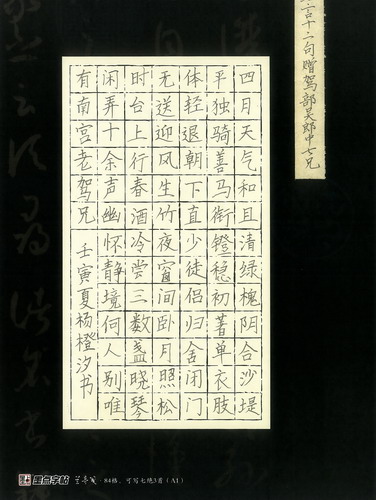 言十二句赠驾部吴郎中七兄
四月天气和且清绿槐阴合沙堤
平独骑善马衔镫稳初著单衣肢
体轻退朝下直少徒侣归舍闭门
无送迎风生竹夜窗间卧月照松
时台上行春酒冷尝三数盏晓琴
闲弄十余声幽怀静境何人别唯
有南宫老驾兄
壬寅夏杨橙汐书
墨点字帖 兰亭笺·84格,可写七绝3首(A1)